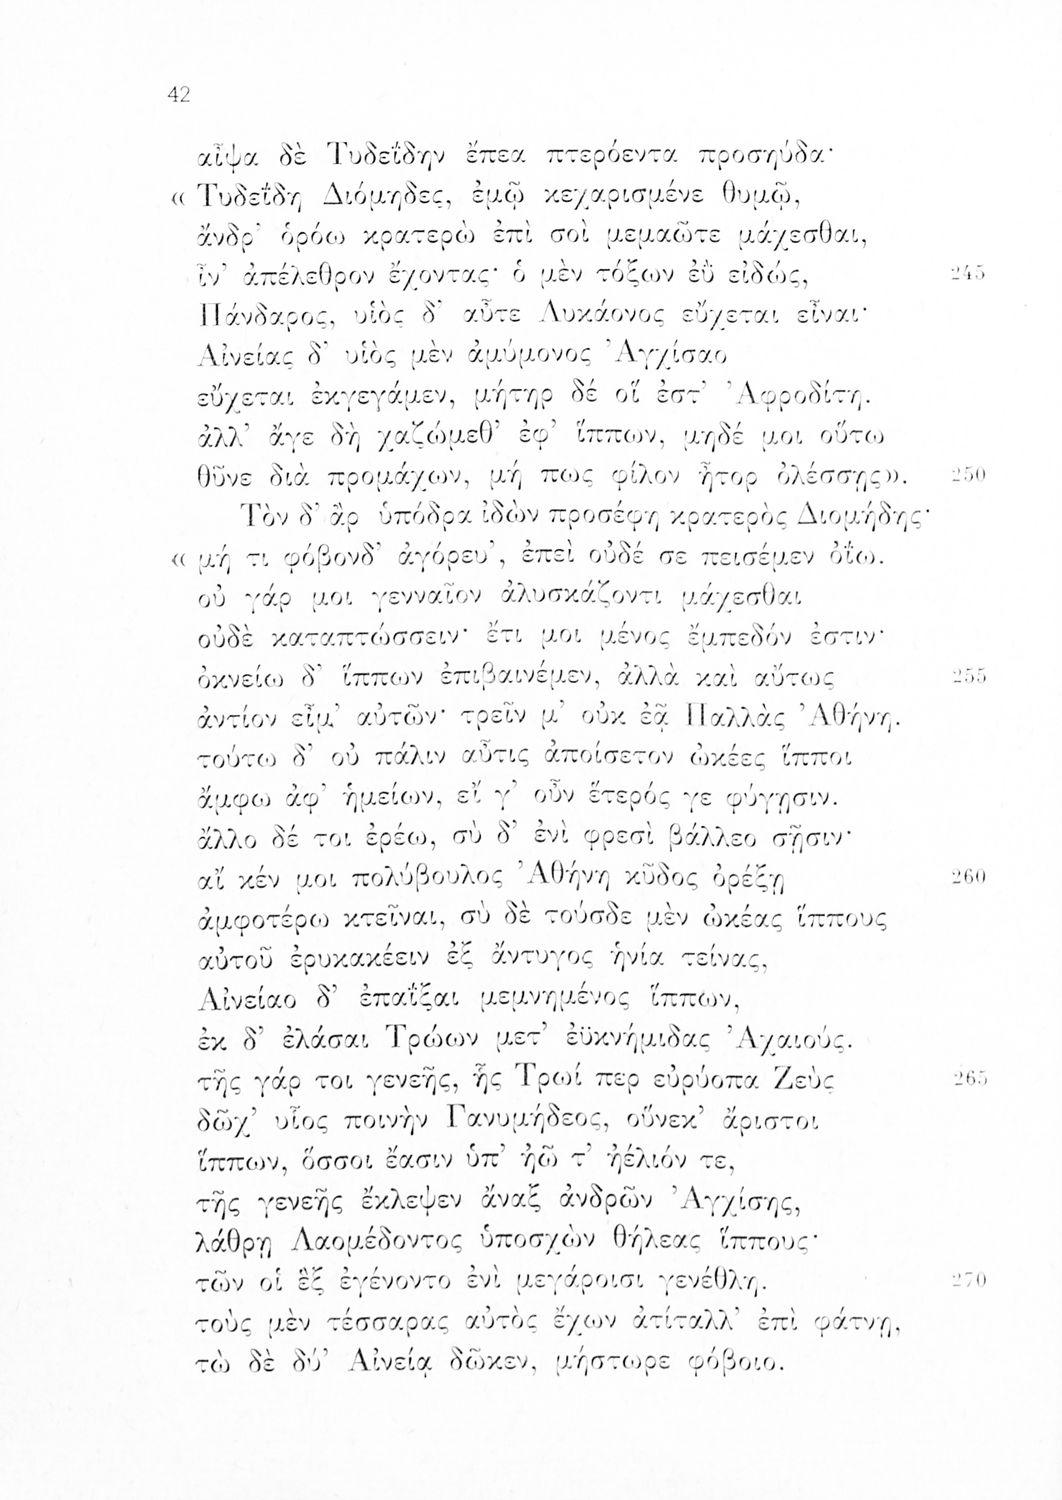 42
αἶψα δὲ Τυδεΐδην ἔπεα πτερόεντα προσηύδα·
« Τυδεΐδη Διόμηδες, ἐμῷ κεχαρισμένε θυμῷ,
ἄνδρ' ὁρόω κρατερὼ ἐπὶ σοὶ μεμαῶτε μάχεσθαι,
ἶν' ἀπέλεθρον ἔχοντας· ὁ μὲν τόξων ἐῢ εἰδώς, 245
Πάνδαρος, υἱὸς δ' αὖτε Λυκάονος εὔχεται εἶναι·
Αἰνείας δ' υἱὸς μὲν ἀμύμονος Ἀγχίσαο
εὔχεται ἐκγεγάμεν, μήτηρ δέ οἵ ἐστ' Ἀφροδίτη.
ἀλλ' ἄγε δὴ χαζώμεθ' ἐφ' ἵππων, μηδέ μοι οὕτω
θῦνε διὰ προμάχων, μή πως φίλον ἦτορ ὀλέσσῃς». 250
Τὸν δ' ἂρ ὑπόδρα ἰδὼν προσέφη κρατερὸς Διομήδης·
« μή τι φόβονδ' ἀγόρευ', ἐπεὶ οὐδέ σε πεισέμεν ὀΐω.
οὐ γάρ μοι γενναῖον ἀλυσκάζοντι μάχεσθαι
οὐδὲ καταπτώσσειν· ἔτι μοι μένος ἔμπεδόν ἐστιν·
ὀκνείω δ' ἵππων ἐπιβαινέμεν, ἀλλὰ καὶ αὔτως 255
ἀντίον εἶμ' αὐτῶν· τρεῖν μ' οὐκ ἐᾷ Παλλὰς Ἀθήνη.
τούτω δ' οὐ πάλιν αὖτις ἀποίσετον ὠκέες ἵπποι
ἄμφω ἀφ' ἡμείων, εἴ γ' οὖν ἕτερός γε φύγῃσιν.
ἄλλο δέ τοι ἐρέω, σὺ δ' ἐνὶ φρεσὶ βάλλεο σῇσιν·
αἴ κέν μοι πολύβουλος Ἀθήνη κῦδος ὀρέξῃ 260
ἀμφοτέρω κτεῖναι, σὺ δὲ τούσδε μὲν ὠκέας ἵππους
αὐτοῦ ἐρυκακέειν ἐξ ἄντυγος ἡνία τείνας,
Αἰνείαο δ' ἐπαΐξαι μεμνημένος ἵππων,
ἐκ δ' ἐλάσαι Τρώων μετ' ἐϋκνήμιδας Ἀχαιούς.
τῆς γάρ τοι γενεῆς, ἧς Τρωί περ εὐρύοπα Ζεὺς 265
δῶχ' υἷος ποινὴν Γανυμήδεος, οὕνεκ' ἄριστοι
ἵππων, ὅσσοι ἔασιν ὑπ' ἠῶ τ' ἠέλιόν τε,
τῆς γενεῆς ἔκλεψεν ἄναξ ἀνδρῶν Ἀγχίσης,
λάθρῃ Λαομέδοντος ὑποσχὼν θήλεας ἵππους·
τῶν οἱ ἓξ ἐγένοντο ἐνὶ μεγάροισι γενέθλη. 270
τοὺς μὲν τέσσαρας αὐτὸς ἔχων ἀτίταλλ' ἐπὶ φάτνῃ,
τὼ δὲ δύ' Αἰνείᾳ δῶκεν, μήστωρε φόβοιο.